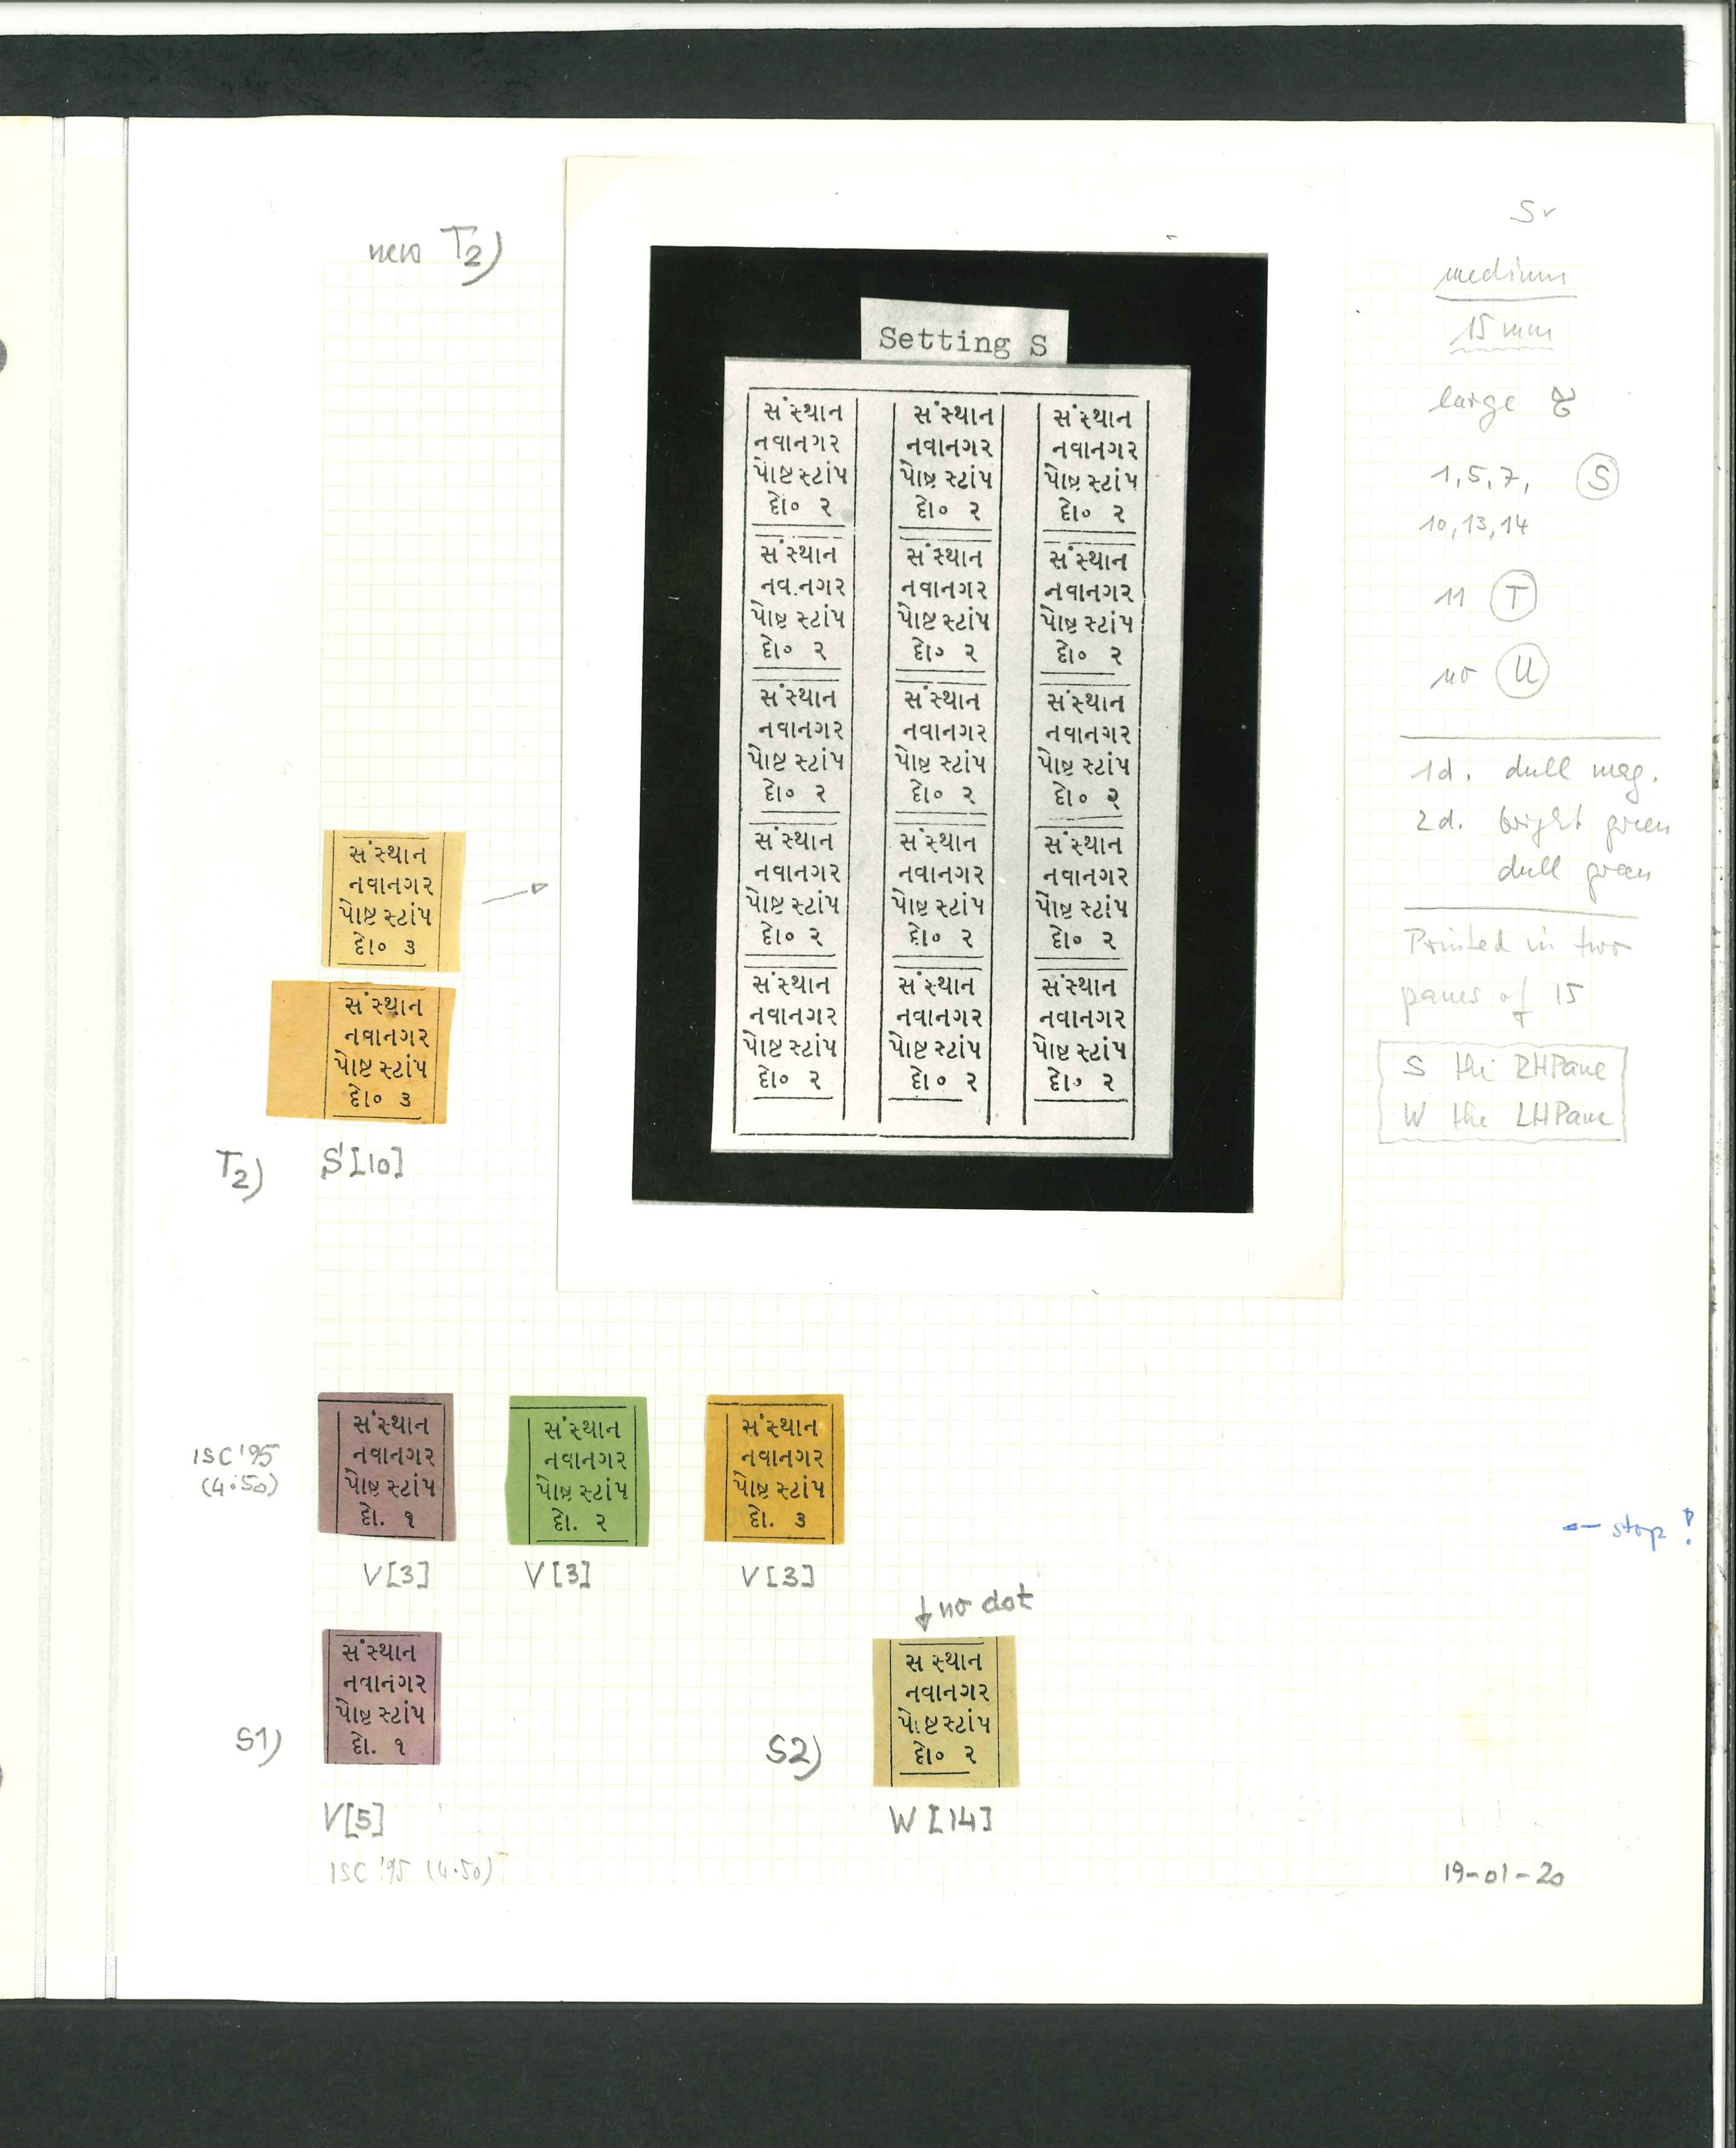 new T2)
Setting S
સંસ્થાન સંસ્થાન સંસ્થાન
નવાનગર નવાનગર નવાનગર
પોષ્ટ સ્ટાંપ પોષ્ટ સ્ટાંપ પોષ્ટ સ્ટાંપ
દો૦ ૨ દો૦ ૨ દો૦ ૨
સંસ્થાન સંસ્થાન સંસ્થાન
નવ.નગર નવાનગર નવાનગર
પોષ્ટ સ્ટાંપ પોષ્ટ સ્ટાંપ પોષ્ટ સ્ટાંપ
દો૦ ૨ દો૦ ૨ દો૦ ૨
સંસ્થાન સંસ્થાન સંસ્થાન
નવાનગર નવાનગર નવાનગર
પોષ્ટ સ્ટાંપ પોષ્ટ સ્ટાંપ પોષ્ટ સ્ટાંપ
દો૦ ૨ દો૦ ૨ દો૦ ૨
સંસ્થાન સંસ્થાન સંસ્થાન
નવાનગર નવાનગર નવાનગર
પોષ્ટ સ્ટાંપ પોષ્ટ સ્ટાંપ પોષ્ટ સ્ટાંપ
દો૦ ૨ દો૦ ૨ દો૦ ૨
સંસ્થાન સંસ્થાન સંસ્થાન
નવાનગર નવાનગર નવાનગર
પોષ્ટ સ્ટાંપ પોષ્ટ સ્ટાંપ પોષ્ટ સ્ટાંપ
દો૦ ૨ દો૦ ૨ દો૦ ૨
medium
15 mm
large
1, 5, 7, S
10, 13, 14
11 T
no U
1d. dull mag.
2d. bright green
dull green
Printed in two
panes of 15
S the RHPane
W the LHPane
સંસ્થાન
નવાનગર
પોષ્ટ સ્ટાંપ
દો૦ ૩
સંસ્થાન
નવાનગર
પોષ્ટ સ્ટાંપ
દો૦ ૩
T2) S[10]
ISC '95
(4.50)
સંસ્થાન
નવાનગર
પોષ્ટ સ્ટાંપ
દો. ૧
V[3]
સંસ્થાન
નવાનગર
પોષ્ટ સ્ટાંપ
દો. ૨
V[3]
સંસ્થાન
નવાનગર
પોષ્ટ સ્ટાંપ
દો. ૩
V[3]
← stop!
સંસ્થાન
નવાનગર
પોષ્ટ સ્ટાંપ
દો. ૧
S1)
V[5]
ISC '95 (4.50)
↓ no dot
સ સ્થાન
નવાનગર
પોષ્ટ સ્ટાંપ
દો૦ ૨
S2)
W[14]
19-01-20